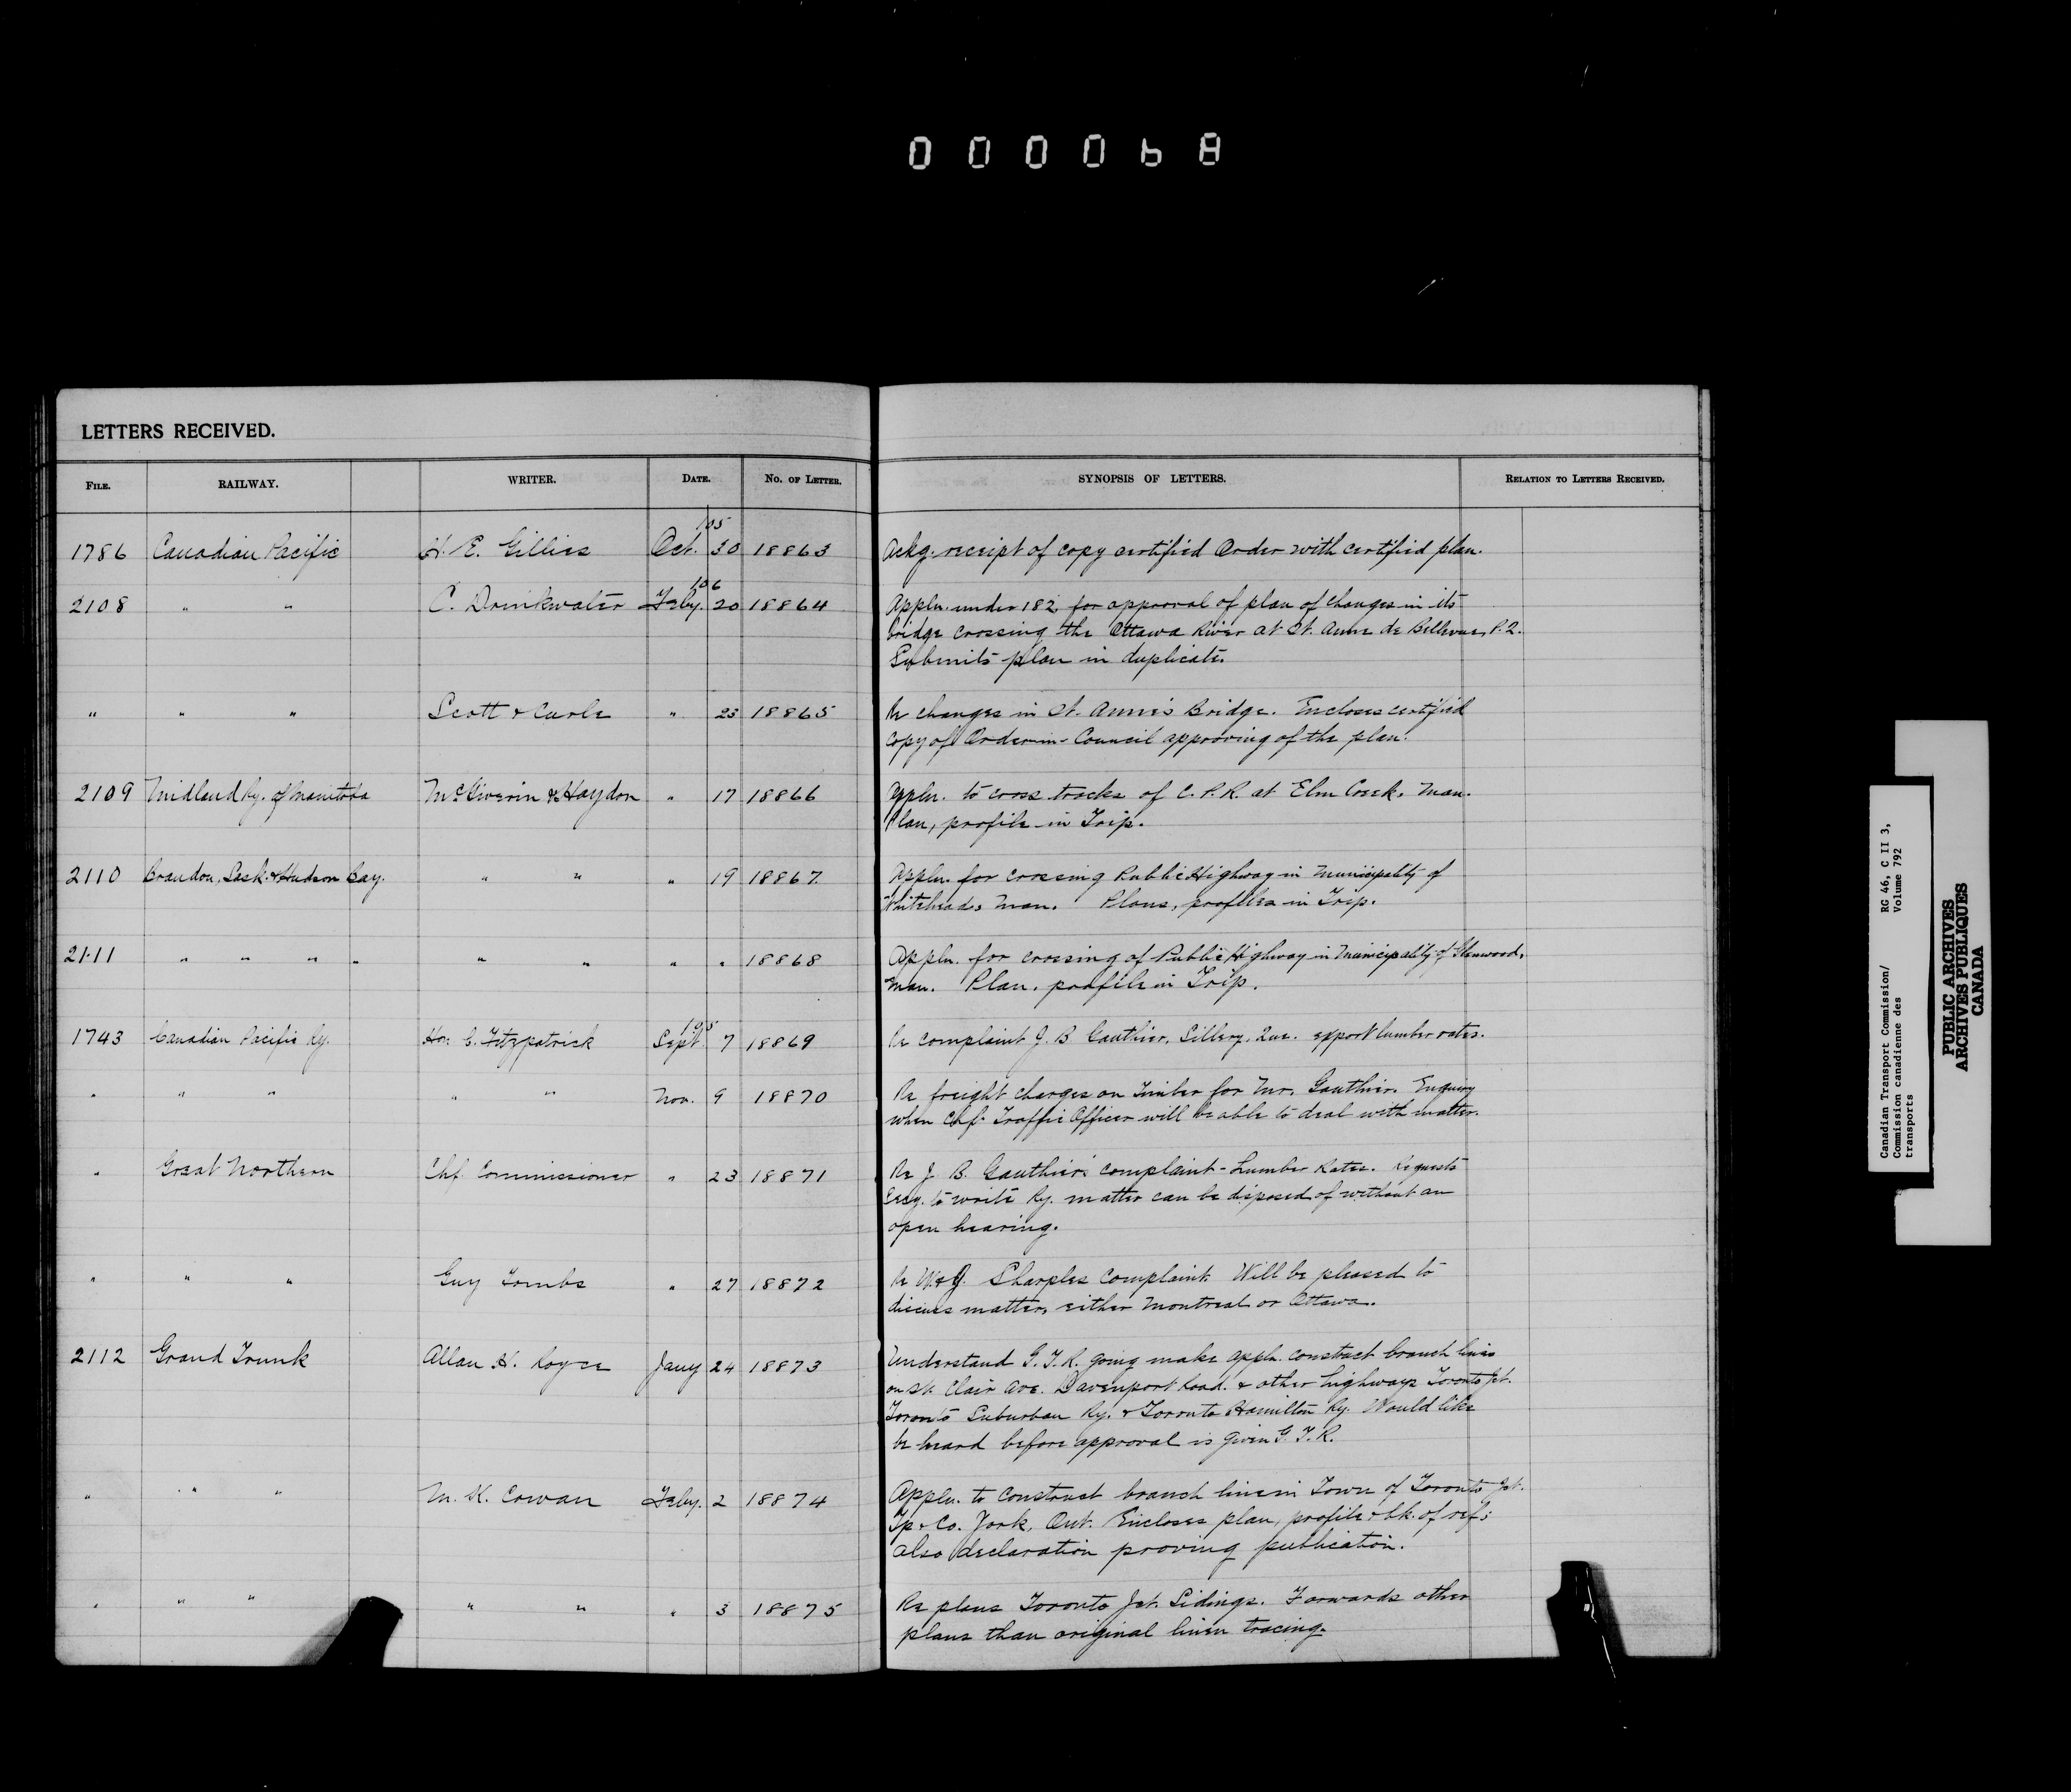 000068
LETTERS RECEIVED.
FILE. RAILWAY. WRITER. DATE. NO. OF LETTER. SYNOPSIS OF LETTERS. RELATION TO LETTERS RECEIVED.
'05
1786 Canadian Pacific H. E. Gillies Oct. 30 18863 Ackg. receipt of copy certified Order with certified plan.
'06
2108 " " C. Drinkwater Feby. 20 18864 Appln. under 182 for approval of plan of changes in its
bridge crossing the Ottawa River at St. Anne de Bellevue, P.Q.
Submits plan in duplicate.
" " " Scott & Curle " 23 18865 Re changes in St. Anne's Bridge. Encloses certified
copy of Order-in-Council approving of the plan.
2109 Midland Ry. of Manitoba McGiverin & Haydon " 17 18866 Appln. to cross tracks of C. P. R. at Elm Creek, Man.
Plan, profile in Trip.
2110 Brandon, Sask. & Hudson Bay. " " " 19 18867 Appln. for crossing Public Highway in Municipality of
Whitehead, Man. Plans, profiles in Trip.
2111 " " " " " " " " 18868 Appln. for crossing of Public Highway in Municipality of Glenwood,
Man. Plan, profile in Trip.
'05
1743 Canadian Pacific Ry. Hon. C. Fitzpatrick Sept. 7 18869 Re complaint J. B. Gauthier, Sillery, Que. export lumber rates.
" " " " " Nov. 9 18870 Re freight charges on timber for Mr. Gauthier. Enquiry
when Chf. Traffic Officer will be able to deal with matter.
" Great Northern Chf. Commissioner " 23 18871 Re J. B. Gauthier's complaint - Lumber Rates. Requests
Secy. to write Ry. matter can be disposed of without an
open hearing.
" " " Guy Tombs " 27 18872 Re W. & J. Sharples complaint. Will be pleased to
discuss matter, either Montreal or Ottawa.
2112 Grand Trunk Allan H. Royce Jany 24 18873 Understand G. T. R. going make appln. construct branch lines
on St. Clair Ave. Davenport Road. & other highways Toronto Jct.
Toronto Suburban Ry. & Toronto Hamilton Ry. Would like
be heard before approval is given G. T. R.
" " " M. K. Cowan Feby. 2 18874 Appln. to construct branch line in Town of Toronto Jct.
Tp & Co. York, Ont. Encloses plan, profile & bk. of ref;
also declaration proving publication.
" " " " " " 3 18875 Re plans Toronto Jct. Sidings. Forwards other
plans than original linen tracing.
Canadian Transport Commission/ RG 46, C II 3,
Commission canadienne des Volume 792
transports
PUBLIC ARCHIVES
ARCHIVES PUBLIQUES
CANADA